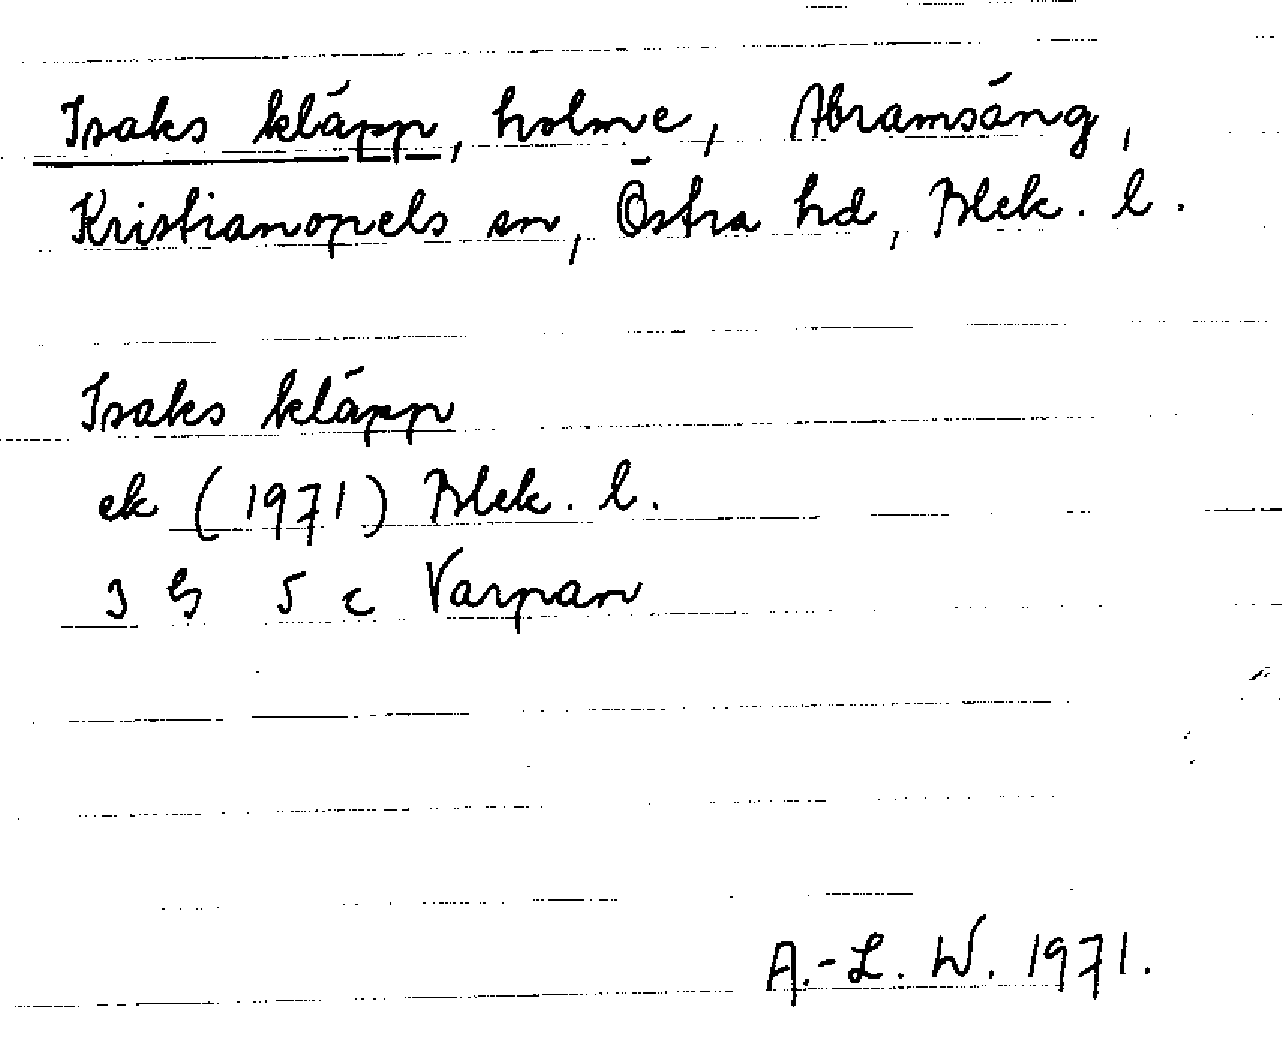 Isaks kläpp, holme, Abramsäng,
Kristianopels sn, Östra hd, Blek. l.
Isaks kläpp
ek (1971) Blek. l.
3 G 5 c Varpan
A.-L. W. 1971.